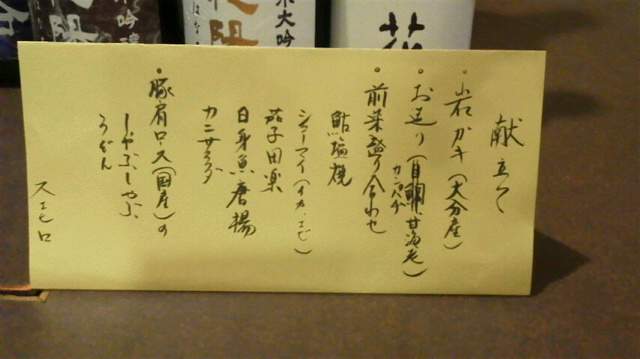 献立て
・岩ガキ(大分産)
・お造り(目鯛、甘海老)
カンパチ
・前菜盛り合わせ
鮎塩焼
シューマイ(イカ、エビ)
茄子田楽
白身魚唐揚
カニサラダ
・豚肩ロース(国産)の
しゃぶしゃぶ
うどん
スエヒロ
大吟
花